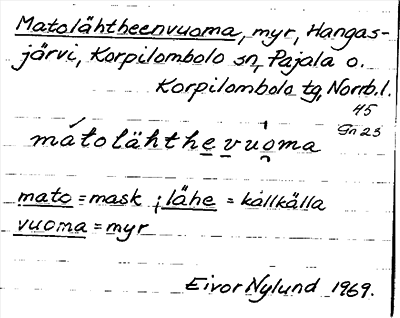 Matolähtheenvuoma, myr, Hangas-
järvi, Korpilombolo sn, Pajala o.
Korpilombolo tg, Norrb. l.
45
Gn 23
mátolähthevuoma
mato = mask ; lähe = kallkälla
vuoma = myr
Eivor Nylund 1969.